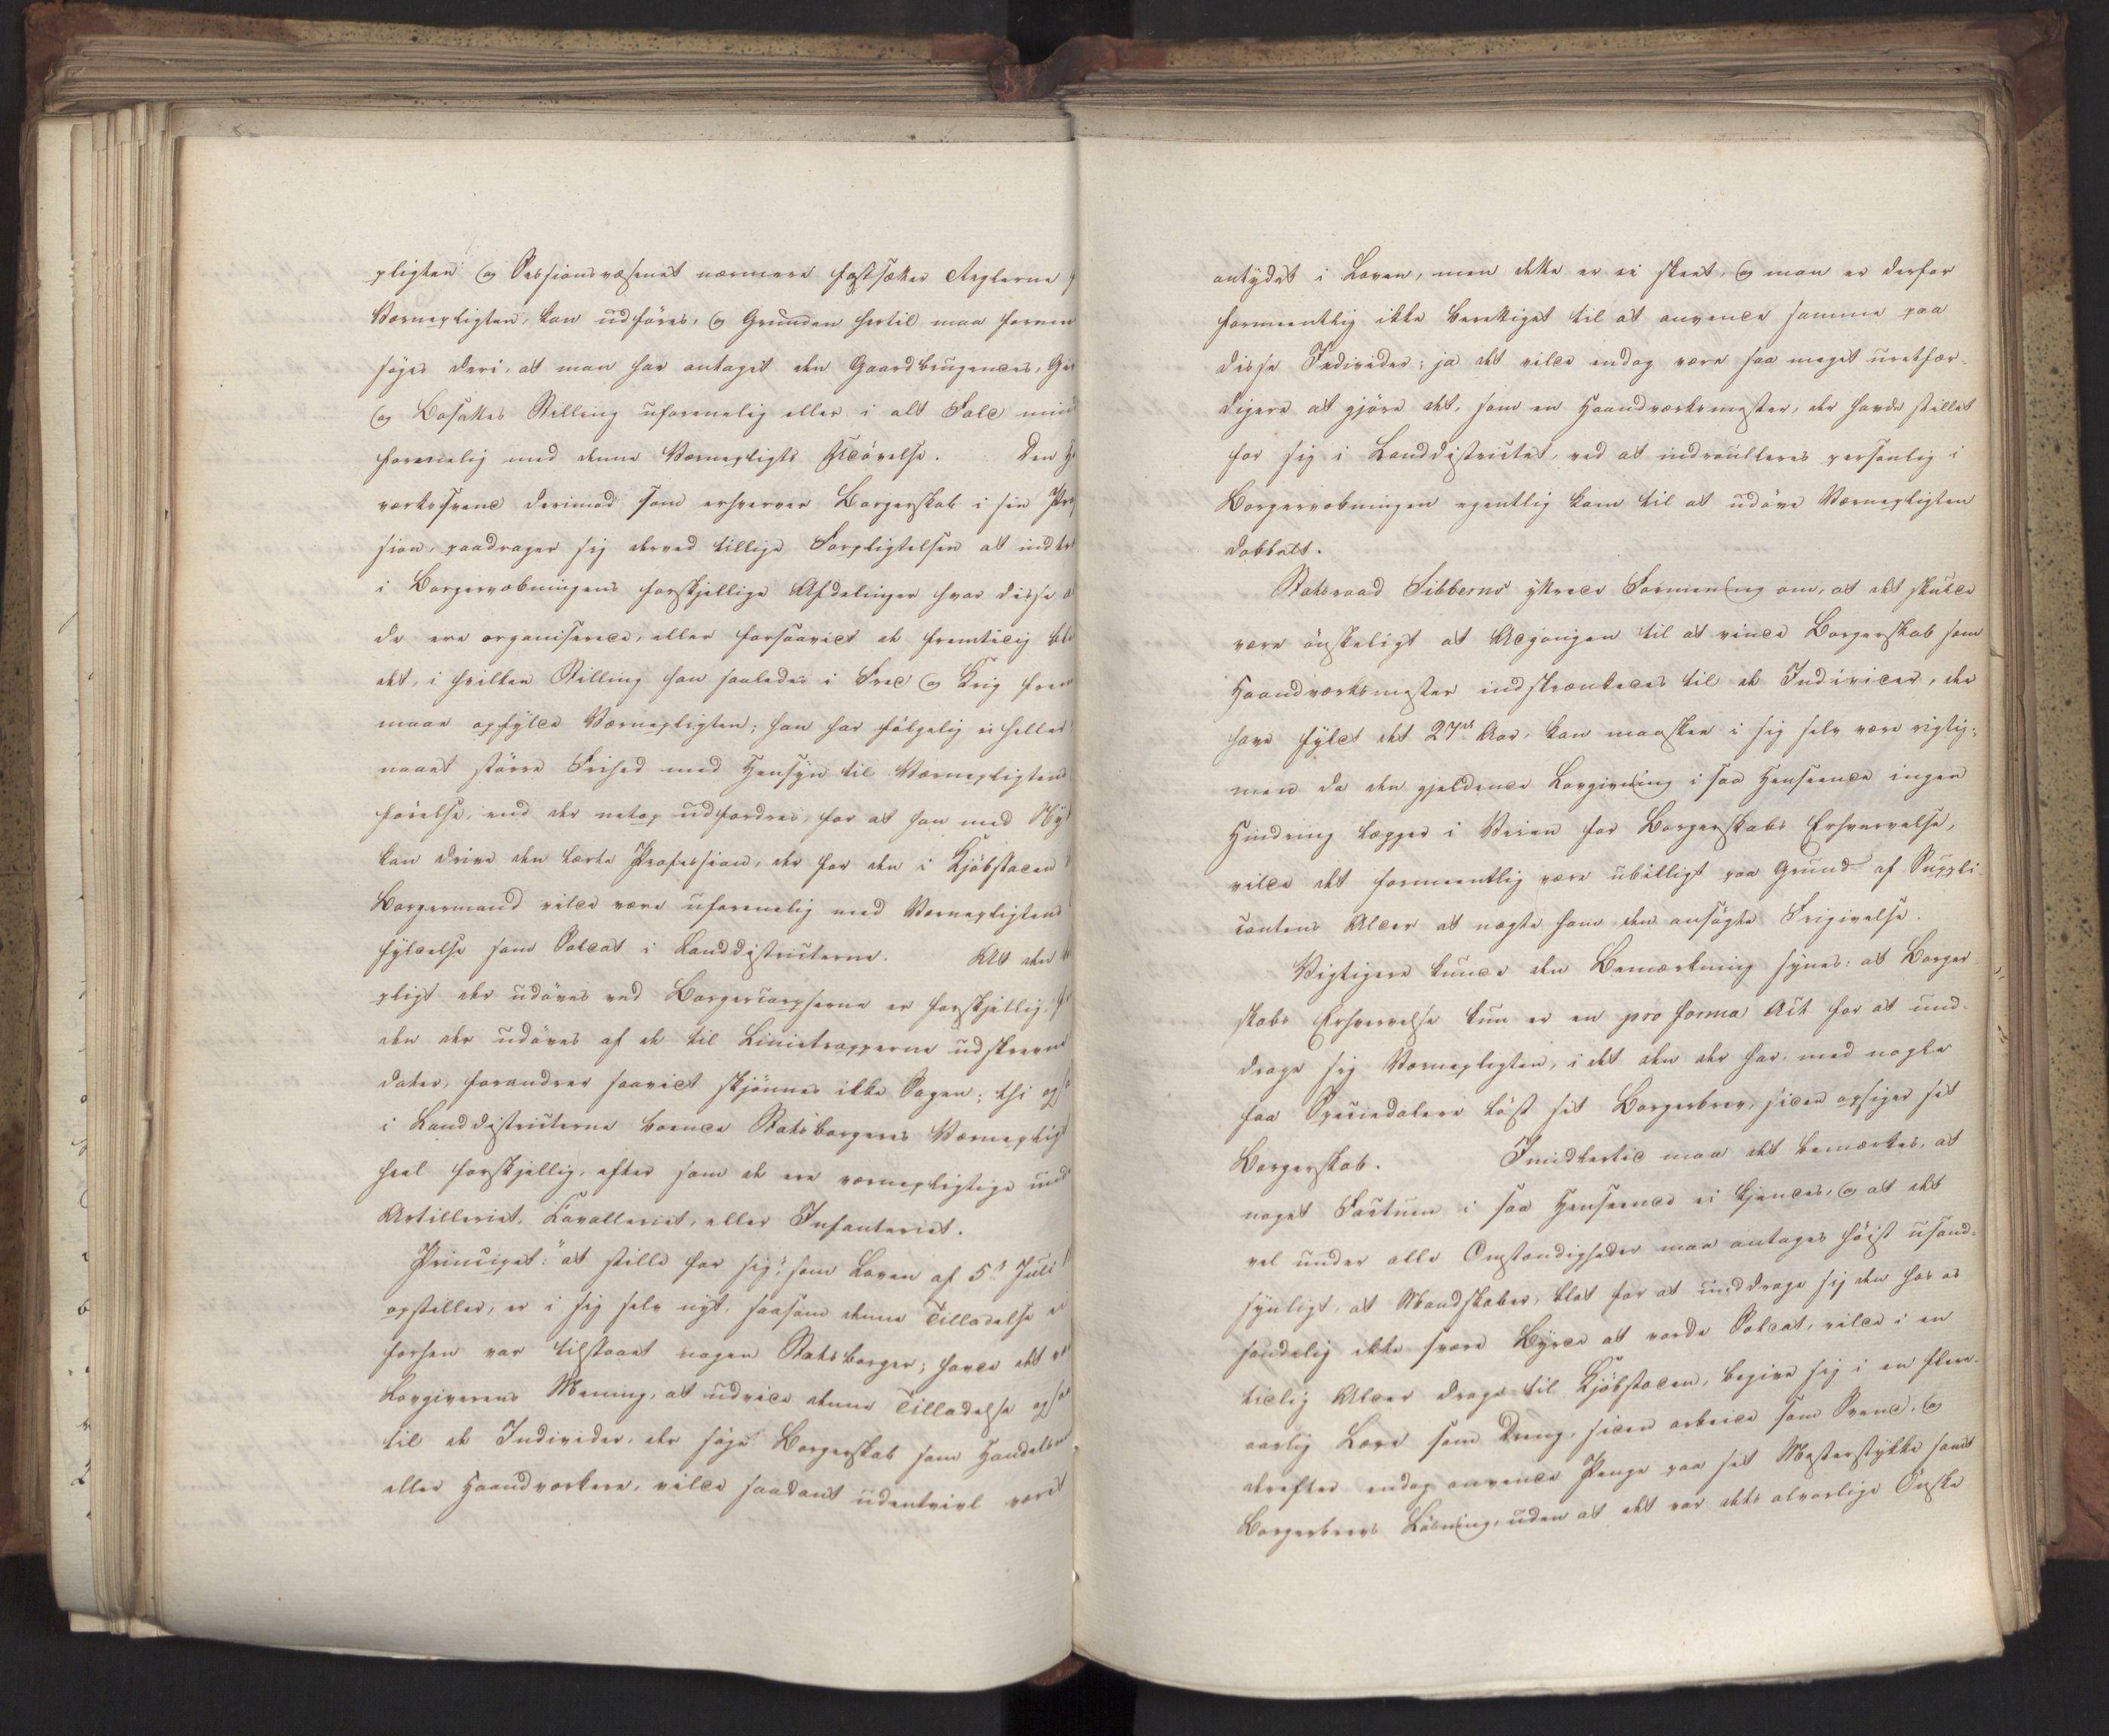 pligten og Sessionsvæsenet nærmere fastsætter Reglerne
Værnepligten, kan udføres, og Grunden hertil maa formee
søges deri, at man har antaget den Gaardbrugendes, Gif
og Bosattes Stilling uforenelig eller i alt Fald mind
forenelig med denne Værnepligts Udøvelse. Den
værkssvend derimod som erhverver Borgerskab i sin Pro
sion, paadrager sig derved tillige Forpligtelsen at indtr
i Borgervæbningens forskjellige Afdelinger hvor disse
de ere organiserede, eller forsaavidt de fremtidig bli
det, i hvilken Stilling han saaledes i Fred og Krig frem
maae opfylde Værnepligten; han har følgelig ei heller
noget større Frihed med Hensyn til Værnepligtens
førelse, end der netop udfordres, for at han med Ny
kan drive den lærte Profession, der for den i Kjøbstaden
Borgermand vilde være uforenelig med Værnepligtens
fyldelse som Soldat i Landdistricterne. At den
pligt der udøves ved Borgercorpserne er forskjellig
den der udøves af de til Linietropperne udskrevne
dater, forandrer saavidt skjønnes ikke Sagen; thi og
i Landdistricterne boende Statsborgeres Værnepligt
heel forskjellig, efter som de ere værnepligtige und
Artilleriet, Cavalleriet, eller Infanteriet.
Principet: "at stille for sig", som Loven af 5te Juli
opstiller, er i sig selv nyt, saasom denne Tilladelse ei
forhen var tilstaaet nogen Statsborger; havde det v
Lovgiverens Mening, at udvide denne Tilladelse og
til de Individer, der søge Borgerskab som Handels
eller Haandværkere, vilde saadant udentvivl være
antydet i Loven, men dette er ei skeet, og man er derfor
formeentlig ikke berettiget til at anvende samme paa
disse Individer; ja det vilde endog være saa meget uretfær-
digere at gjøre det, som en Haandværksmester, der havde stillet
for sig i Landdistrictet, ved at indroulleres personlig i
Borgervæbningen egentlig kom til at udøve Værnepligten
dobbelt.
Statsraad Sibberns yttrede Formening om, at det skulde
være ønskeligt at Adgangen til at vinde Borgerskab som
Haandværksmester indskrænkedes til de Individer, der
have fyldt det 27de Aar, kan maaskee i sig selv være rigtig;
men da den gjeldende Lovgivning i saa Henseende ingen
Hindring lægger i Veien for Borgerskabs Erhvervelse,
vilde det formeentlig være ubilligt paa Grund af Suppli-
cantens Alder at nægte ham den ansøgte Frigivelse.
Vigtigere kunde den Bemærkning synes: at Borger-
skabs Erhvervelse kun er en pro forma Act for at und-
drage sig Værnepligten, i det den der har med nogle
faa Speciedalere løst sit Borgerbrev, siden opsiger sit
Borgerskab. Imidlertid maa det bemærkes, at
noget Factum i saa Henseende ei kjendes, og at det
vel under alle Omstændigheder maa antages høist usand-
synligt, at Mandskaber, blot for at unddrage sig den hos os
sandelig ikke svære Byrde at vorde Soldat, vilde i en
tidlig Alder drage til Kjøbstaden, begive sig i en fleer-
aarlig Lære som Dreng, siden arbeide som Svend, og
derefter endog anvende Penge paa sit Mesterstykke samt
Borgerbrevs Løsning, uden at det var dets alvorlige Ønske